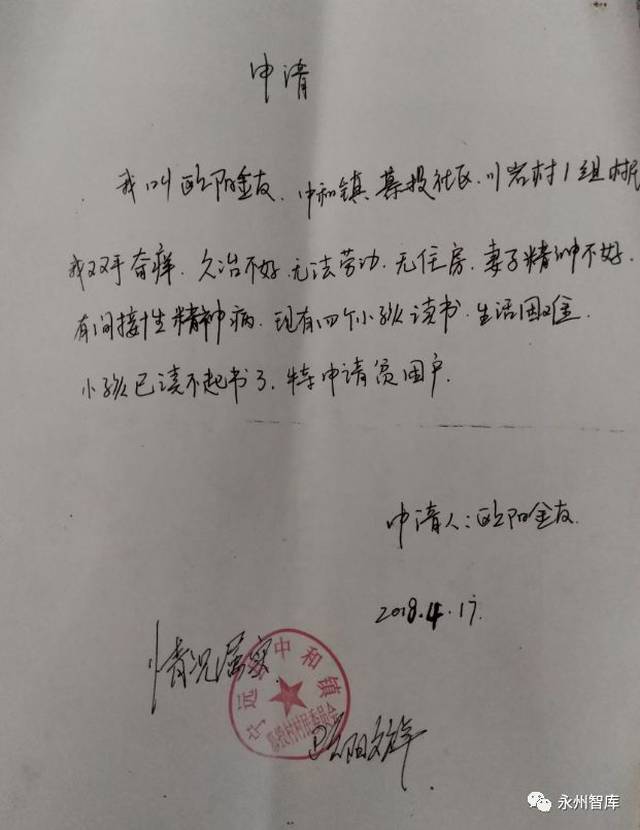 申请
我叫欧阳金友、中和镇慕投社区、川岩村1组村民
我双手奋痒、久治不好、无法劳动、无住房、妻子精神不好、
有间接性精神病、现有四个小孩读书、生活困难、
小孩已读不起书了、特申请贫困户.
申请人:欧阳金友
2018.4.17.
情况属实
宁远县中和镇
村村民委员会
欧阳
永州智库